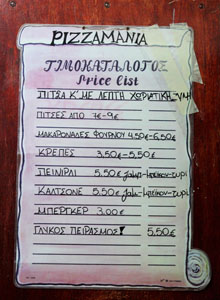 PIZZAMANIA
ΤΙΜΟΚΑΤΑΛΟΓΟΣ
Price List
ΠΙΤΣΑ Κ' ΜΕ ΛΕΠΤΗ ΧΩΡΙΑΤΙΚΗ
ΠΙΤΣΕΣ ΑΠΟ 7€-9€
ΜΑΚΑΡΟΝΑΔΕΣ ΦΟΥΡΝΟΥ 4,50€-6,50€
ΚΡΕΠΕΣ 3,50€-5,50€
ΠΕΙΝΙΡΛΙ 5.50€
ΚΑΛΤΣΟΝΕ 5.50€
ΜΠΕΡΓΚΕΡ 3.00€
ΓΛΥΚΟΣ ΠΕΙΡΑΣΜΟΣ! 5,50€